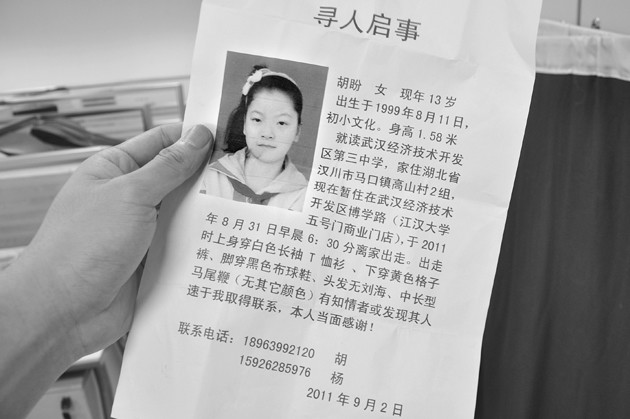 寻人启事
胡盼 女 现年13岁
出生于1999年8月11日，
初小文化。身高1.58米
就读武汉经济技术开发
区第三中学，家住湖北省
汉川市马口镇高山村2组，
现在暂住在武汉经济技术
开发区博学路（江汉大学
五号门商业门店），于2011
年8月31日早晨6：30分离家出走。出走
时上身穿白色长袖T恤衫、下穿黄色格子
裤、脚穿黑色布球鞋、头发无刘海、中长型
马尾鞭（无其它颜色）有知情者或发现其人
速于我取得联系，本人当面感谢！
联系电话：18963992120 胡
15926285976 杨
2011年9月2日